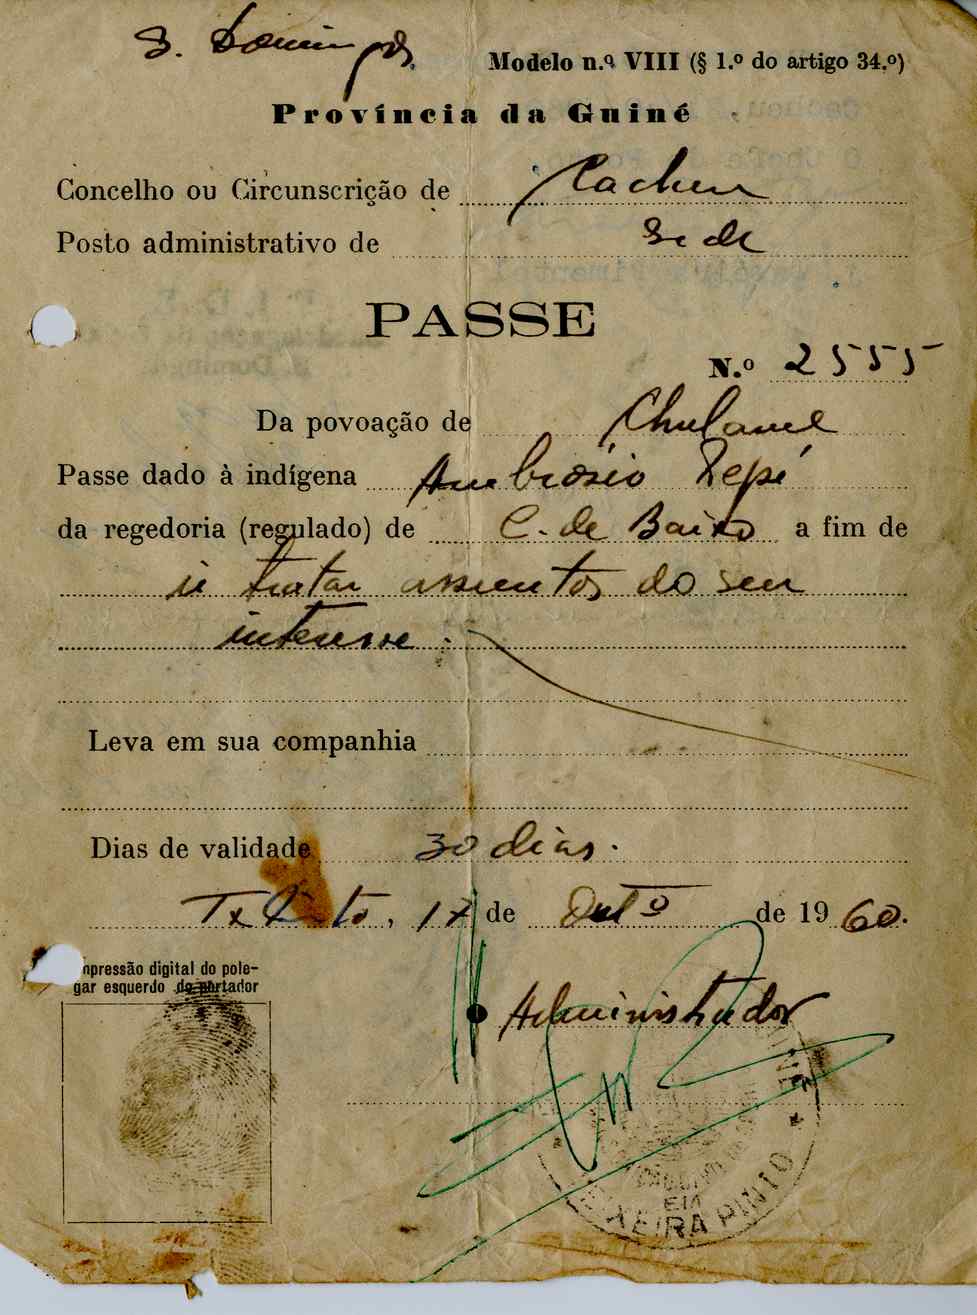 S. Domingos
Modelo n.º VIII (§ 1.º do artigo 34.º)
Província da Guiné
Concelho ou Circunscrição de Cacheu
Posto administrativo de Sede
PASSE
N.º 2555
Da povoação de
Passe dado à indígena Ambrósio
da regedoria (regulado) de C. de Baixo a fim de
ir tratar assuntos do seu
interesse.
Leva em sua companhia
Dias de validade 30 dias.
Tx Pinto, 17 de Outº de 1960.
mpressão digital do pole-
gar esquerdo do portador
Administrador
EM
TEIXEIRA PINTO